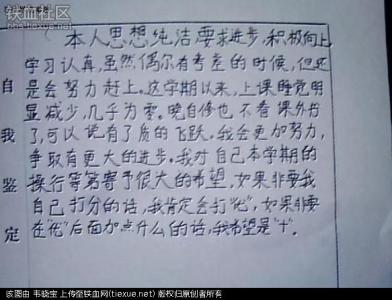 铁血社区
tiexue.net
自我鉴定
本人思想纯洁要求进步，积极向上，
学习认真，虽然偶尔有考差的时候，但还
是会努力赶上。这学期以来，上课睡觉明
显减少，几乎为零。晚自修也不看课外书
了，可以说有了质的飞跃，我会更加努力，
争取有更大的进步。我对自己本学期的
操行等第寄予很大的希望，如果非要我
自己打分的话，我肯定会打“优”，如果非要
在“优”后面加点什么的话，我希望是“+”。
该图由 韦骁宝 上传至铁血网(tiexue.net) 版权归原创者所有